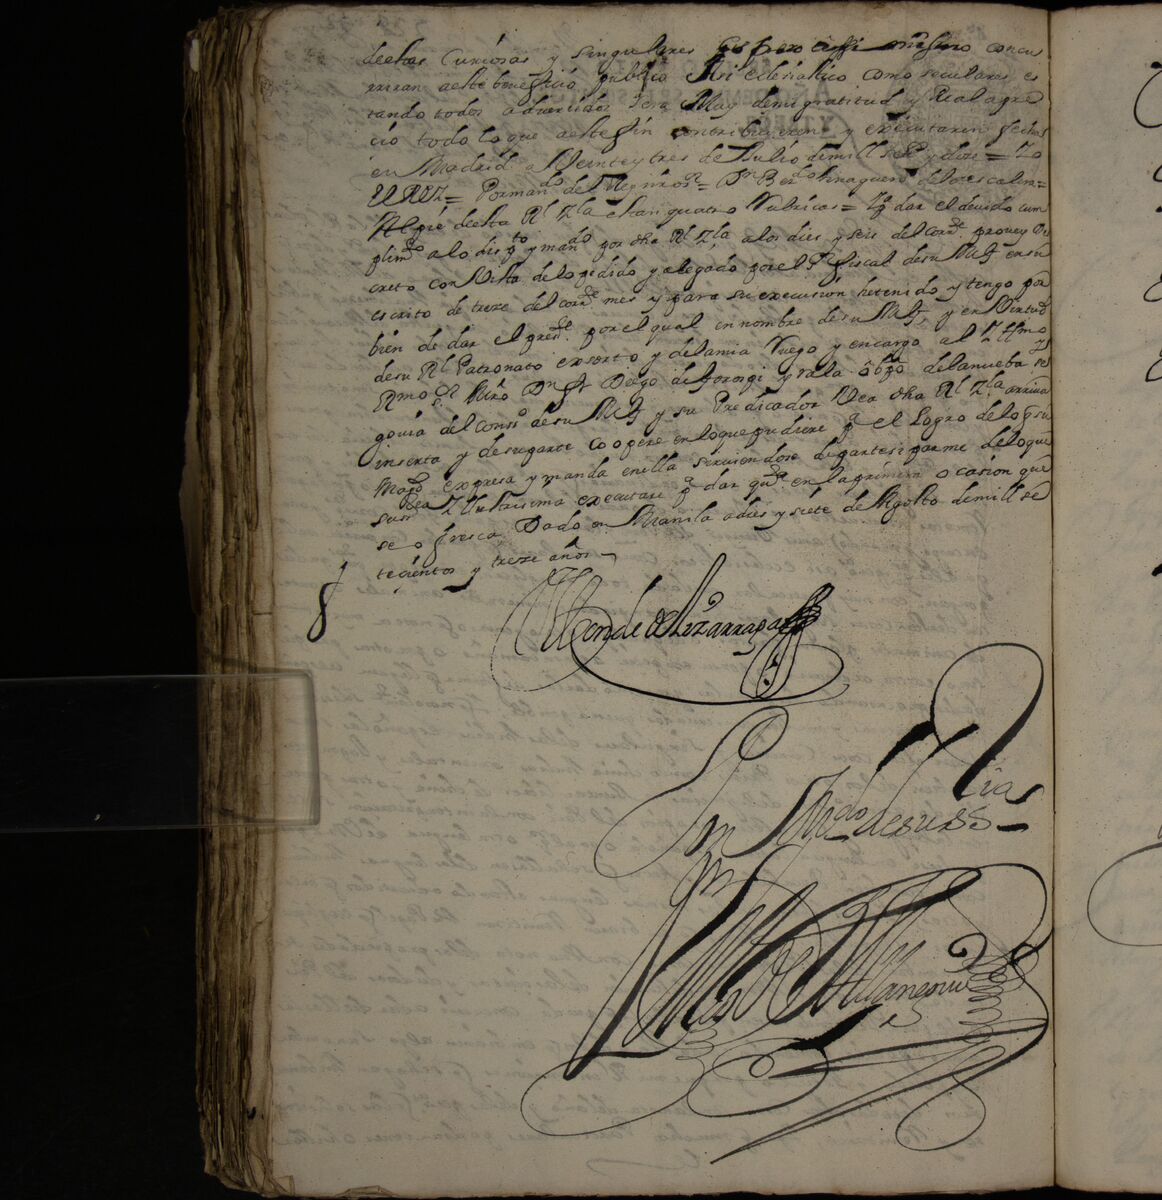 de estas Curiosas y singulares espero assi mismo concu
rriran a este beneficio publico Assi eclesiastico como seculares es
tando todos advertidos sera Muy de mi gratitud y Real apre
cio todo lo que a este fin contribuyeren y executaren fecha
en Madrid a Veinte y tres de Julio de mill setz.s y dose = Yo
EL REY = Por mand.do del Rey nro s.r = D.n Ber.do tinaguero de la escalera =
Al pie de esta R.l Z.la estan quatro Rubricas = Y p.a dar el devido cum
plim.to a lo disp.to y man.do por dha R.l Z.la a los dies y seis del corr.te provey De
creto con Vista de lo pedido y alegado por el s.r fiscal de su Mag.d en su
escrito de trese del corr.te mes y para su execusion he tenido y tengo por
bien de dar el pres.te por el qual en nombre de su Mag.d y en Virtud
de su R.l Patronato exserto y de la mia Ruego y encargo al Ill.mo
R.mo S.r Mro D.n fr Diego de Gorospi y rala Obpo de la nueba se
govia del cons.o de su Mag.d y su Predicador Vea dha R.l Z.la arriva
inserta y de su parte coopere en lo que pudiere p.a el logro de lo q su
Mag.d expresa y manda en ella serviendose de partisiparme de lo que
su s.ria Illustrisima executare p.a dar q.ta en la primera ocasion que
se ofresca Dado en Manila a dies y siete de Agosto de mill se
tecientos y trese años
El Conde de Lizarraga
Por Man.do de su S.ria